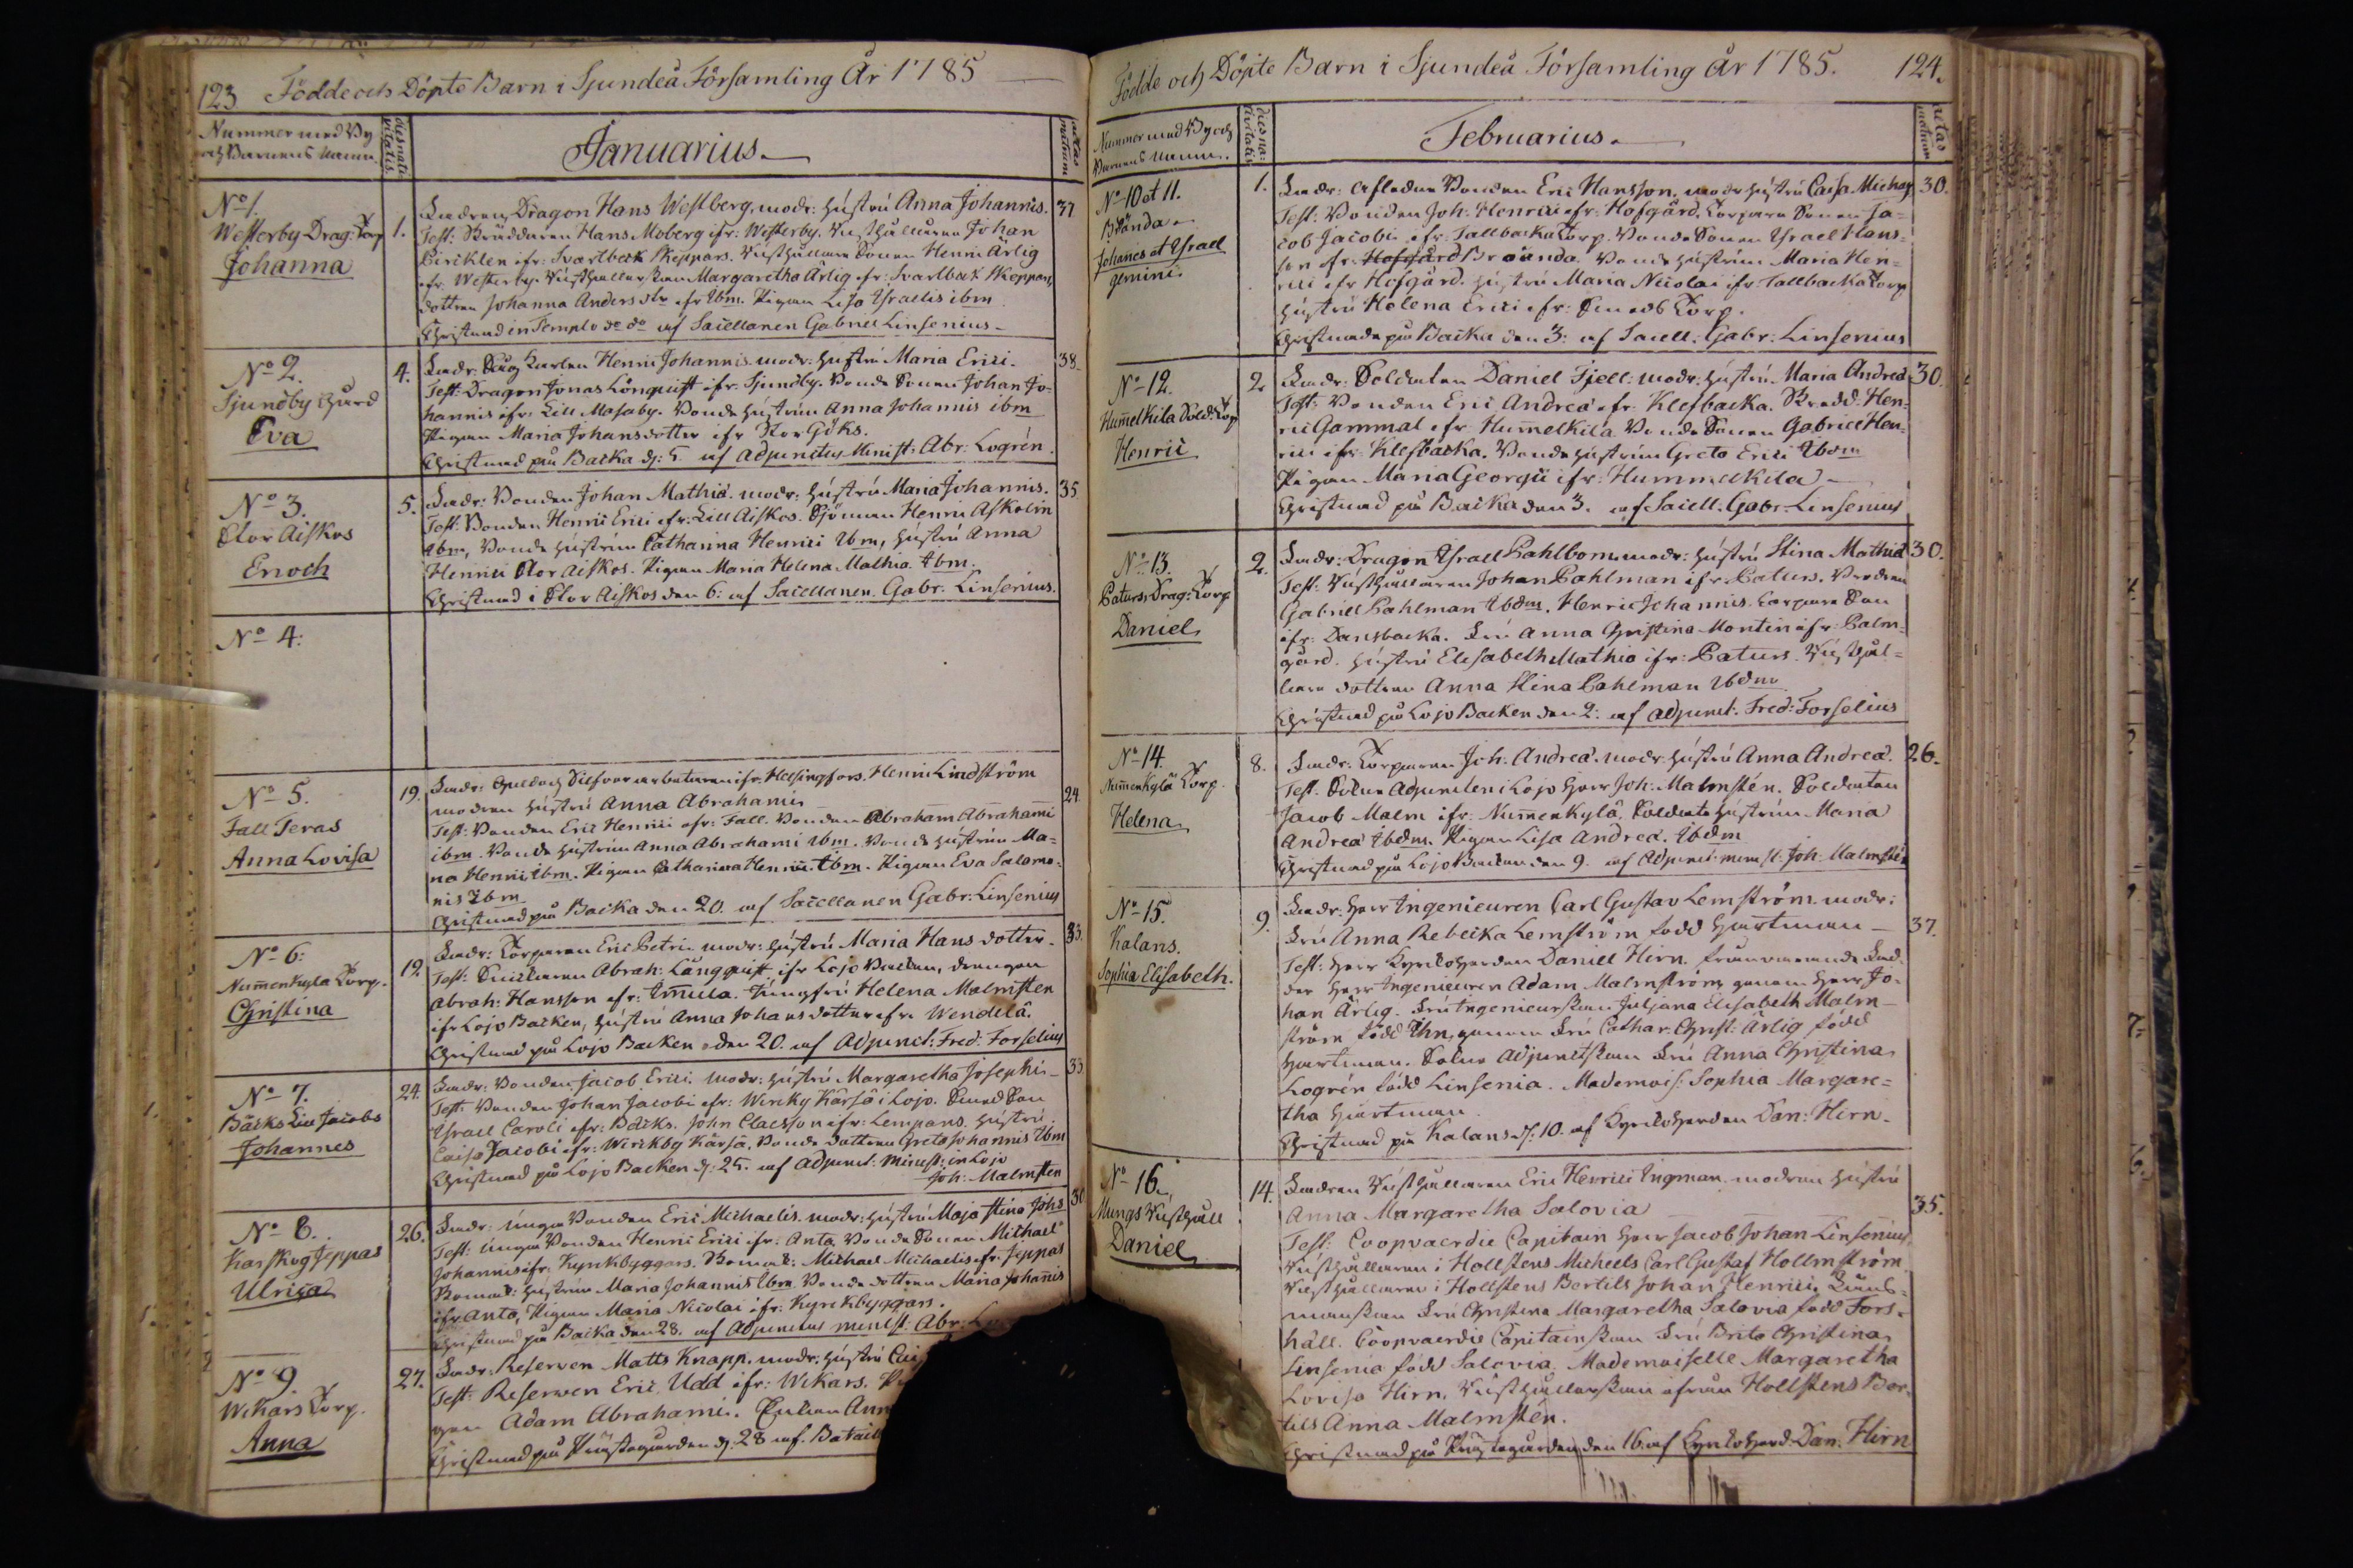 123 Födde och Döpte Barn i Sjundeå Församling År 1785
Nummer med By
och Barnens Namn.
dies nati-
vitatis
Januarius.
aetas
matrum
No 1.
Westerby Drag: Torp
Johanna
1.
Fadren Dragon Hans Westberg, modr: hustru Anna Johannis.
37
Test: Skräddaren Hans Moberg ifr: Westerby. Rusthållaren Johan
ifr: Svartbeck Skeppars. Rusthållare Sonen Henric Ärlig
ifr. Westerby. Rusthållerskan Margaretha Ärlig ifr: Svartbeck Skeppars,
dottren Johanna Anders dtr ifr Ibm. Pigan Lisa Israelis ibm
Christnad in Templo do do af Sacellanen Gabriel Linsenius
No 2.
Sjundby Gård
Eva
4.
Fadr: Karlen Henric Johannis. modr: hustru Maria Erici.
38.
Test: Dragon Jonas Lönquist ifr: Sjundby. Bonde Sonen Johan Jo-
hannis ifr: Lill Masaby. Bonde hustrun Anna Johannis ibm
Pigan Maria Johansdotter ifr Stor Göks.
Christnad på Backa d: 5 af Adjunctus Minist: Abr: Logrén.
No 3.
Stor Aiskos
Enoch
5.
Fadr: Bonden Johan Mathiæ. modr: hustru Maria Johannis.
35
Test: Bonden Henric Erici ifr: Lill Aiskos. Sjöman Henric Askolin
Ibm, Bonde hustrun Catharina Henrici Ibm, hustru Anna
Henrici Stor Aiskos. Pigan Maria Helena Mathiæ Ibm.
Christnad i Stor Aiskos den 6: af Sacellanen. Gabr: Linsenius.
No 4:
No 5.
Fall Teras
Anna Lovisa
19.
Fadr: Guld och Silfver arbetaren ifr. Helsingfors. Henric Lindström
modren hustru Anna Abrahami
24
Test: Bonden Eric Henrici ifr: Fall. Bonden Abraham Abrahami
ibm. Bonde hustrun Anna Abrahami Ibm. Bonde hustrun Ma-
ria Henrici, Ibm. Pigan Catharina Henrici. Ibm. Pigan Eva Salomo-
nis Ibm
Christnad på Backa den 20. af Sacellanen Gabr: Linsenius
No 6:
Nummenkyla Torp.
Christina
19.
Fadr: Torparen Eric Petri. modr: hustru Maria Hans dotter.
33.
Test: Abrah: Långquist ifr Lojo Backen, drengen
Abrah: Hansson ifr: Immula. Jungfru Helena Malmsten
ifr Lojo Backen, hustru Anna Johans dotter ifr Wendelä.
Christnad på Lojo Backen den 20. af Adjunct: Fred: Forselius
No 7.
Bäcks Lill Jacobs
Johannes
24.
Fadr: Bonden Jacob Erici. modr: hustru Margaretha Josephi
33
Test: Bonden Johan Jacobi ifr: Wircky Kärsä i Lojo. Smed Son
Israel Caroli ifr: Bäcks. John Claesson ifr: Lempans. hustru
Caisa Jacobi ifr: Wirckby Kärsä. Bonde dottren Greta Johannis Ibm
Christnad på Lojo Backen d: 25. af Adjunct: Minist: in Lojo
Joh: Malmsten
No 8.
Karskog Jeppas
Ulrica
26.
Fadr: unga Bonden Eric Michaelis. modr: hustru Maja Stina Johs
30
Test: unga Bonden Henric Erici ifr: Anta, Bonde Sonen Michael
Johannis ifr: Kyrkbyggars. Michael Michaelis ifr Jeppas
hustrun Maria Johannis Ibm Bonde dottren Maria Johannis
ifr Anta, Pigan Maria Nicolai ifr: Kyrckbyggars.
Christnad på Backa den 28. af Adjunctus minist. Abr:
No 9.
Wikars Torp.
Anna
27.
Fadr: Reserven Matts Knapp. modr: hustru
Test: Reserven Eric Udd ifr: Wikars.
gen Adam Abrahami. Enkan Ann
Christnad på Prästegården d: 28 af.
Födde och Döpte Barn i Sjundeå Församling År 1785. 124.
Nummer med By och
Barnens Namn.
dies na-
tivitatis
Februarius.
aetas
matrum
No 10 et 11.
Brända
Johanes et Israel
gemini.
1.
Fadr: Aflidne Bonden Eric Hansson. modr hustru Caisa Michaj.
30.
Test: Bonden Joh: Henrici ifr: Hofgård. Torpare Sonen Ja-
cob Jacobi ifr: Tallbacka Torp. Bonde Sonen Israel Hans-
son ifr: Hofgård Brända. Bonde hustrun Maria Hen-
rici ifr Hofgård. hustru Maria Nicolai ifr Tallbacka Torp
hustru Helena Erici ifr: Smeds Torp.
Christnade på Backa den 3: af Sacell: Gabr: Linsenius
No 12.
Hummelkila Sold: Torp
Henric
2
Fadr: Soldaten Daniel Fjell: modr: hustru Maria Andreæ
30.
Test: Bonden Eric Andreæ ifr: Klefbacka. Skradd: Hen-
ric Gammal ifr Hummelkila Bonde Sonen Gabriel Hen-
rici ifr: Klefbacka. Bonde hustrun Greta Erici Ibdm
Pigan Maria Georgii ifr: Hummelkila
Christnad på Backa den 3. af Sacell. Gabr: Linsenius
No 13.
Paturs Drag: Torp
Daniel
2.
Fadr: Dragon Israel Pahlbom. modr: hustru Stina Mathiæ
30.
Test: Rusthållaren Johan Pahlman ifr Paturs. Brodren
Gabriel Pahlman Ibdm. Henric Johannis. Torpare Son
ifr: Dansbacka. Fru Anna Christina Montin ifr: Palm-
gård. hustru Elisabeth Mathiæ ifr: Paturs. Rusthål-
lare dottren Anna Stina Pahlman Ibdm
Christnad på Lojo Backen den 2: af Adjunct: Fred: Forselius
No 14.
Nummenkylä Torp.
Helena
8.
Fadr: Torparen Joh: Andreæ. modr: hustru Anna Andreæ.
26.
Test. Adjuncten i Lojo Herr Joh: Malmstén. Soldaten
Jacob Malm ifr: Nummenkylä. Soldats hustrun Maria
Andreæ Ibdm. Pigan Lisa Andreæ. Ibdm
Christnad på Lojo Backen den 9. af Adjunct: minist: Joh: Malmstén
No 15.
Kalans.
Sophia Elisabeth.
9.
Fadr: Herr Ingenieuren Carl Gustav Lemström. modr:
Fru Anna Rebecka Lemström född Hartman
37.
Test: Herr Kyrkoherden Daniel Hirn. frånvarande Fad-
der Herr Ingenieuren Adam Malmström genom Herr Jo-
han Ärlig. Fru Ingenieurskan Juljana Elisabeth Malm-
ström född Thn, genom Fru Cathar: Christ: Ärlig född
Hartman. Adjunctskan Fru Anna Christina
Logrén född Linsenia. Mademois: Sophia Margare-
tha Hartman
Christnad på Kalans d: 10. af Kyrkoherden Dan: Hirn.
No 16.
Mungs Rusthåll
Daniel
14.
Fadren Rusthållaren Eric Henrici Ingman. modren hustru
Anna Margaretha Salovia
35.
Test: Coopvaerdie Capitain Herr Jacob Johan Linsenius,
Rusthållaren i Hollstens Michels Carl Gustaf Hollmström
Rusthållaren i Hollstens Bertils Johan Henrici. Läns-
manskan Fru Christina Margaretha Salovia född Fors-
häll. Coopvaerdie Capitainskan Fru Brita Christina
Linsenia född Salovia. Mademoiselle Margaretha
Lovisa Hirn, Rusthållerskan ifrån Hollstens Ber-
tils Anna Malmstén.
Christnad på Prästegården den 16. af Kyrkoherd. Dan: Hirn